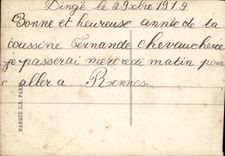 Dingé le 29xbre 1919
Bonne et heureuse année de ta
cousine Fernande Chevaucherie
je passerai mercredi matin pour
aller a Rennes.
MARQUE L.L. PARIS